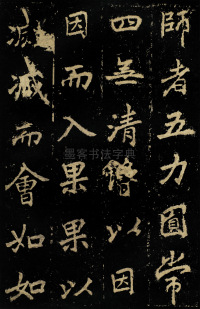 師者五力圓常
四無清以因
因而入果果以
滅滅而會如如
墨客书法字典